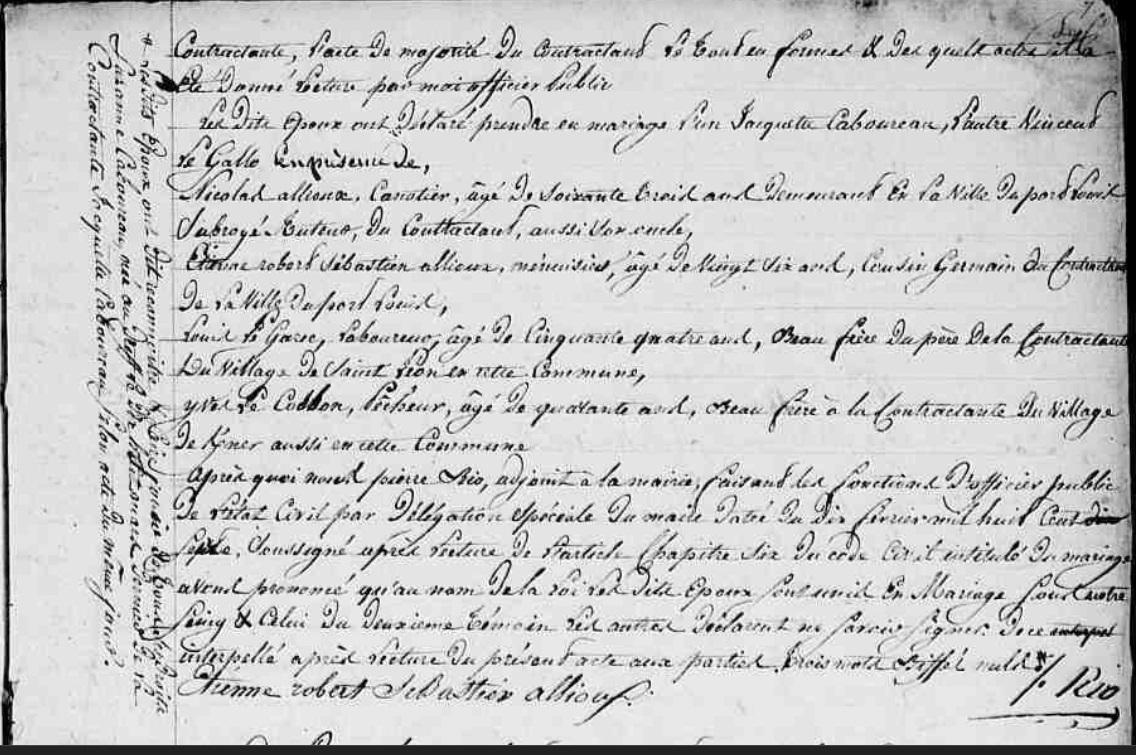 Contractante, l'acte de majorité du Contractant le tout en formes & des quels actes il a
été donné lecture par moi officier public
Les dits Epoux ont déclaré prendre en mariage l'un Jacquette Caboureau, l'autre Vincent
le Gallo en présence de,
Nicolas allioux, Canotier, âgé de soixante trois ans demeurant en la ville du port Louis
Subrogé Tuteur, du Contractant, aussi son oncle,
Etienne robert Sébastien allioux, ménuisier, âgé de vingt six ans, Cousin Germain du Contractant
de la ville du port Louis,
Louis le Garec, laboureur, âgé de Cinquante quatre ans, Beau frère du père de la Contractante
du village de Saint Léon en cette Commune,
yves le Cobbon, Pêcheur, âgé de quarante ans, Beau frère à la Contractante du village
de Kner aussi en cette Commune
Après quoi nous pierre Rio, adjoint à la mairie, faisant les fonctions d'officier public
de l'état Civil par délégation spéciale du maire datée du dix février mil huit Cent dix
sept, Soussigné après lecture de l'article Chapitre Six du code Civil intitulé du mariage
avons prononcé qu'au nom de la loi les dits Epoux sont unis en Mariage sous notre
seing & Celui du deuxième témoin les autres déclarent ne savoir signer de ce
interpellé après lecture du présent acte aux parties trois mots Biffés nuls */.
Etienne robert Sébastien allioux. Rio
* Les dits Epoux ont dit reconnaitre
Suzanne Caboureau, née au
Contractante Jacquette Caboureau selon acte du même jour.